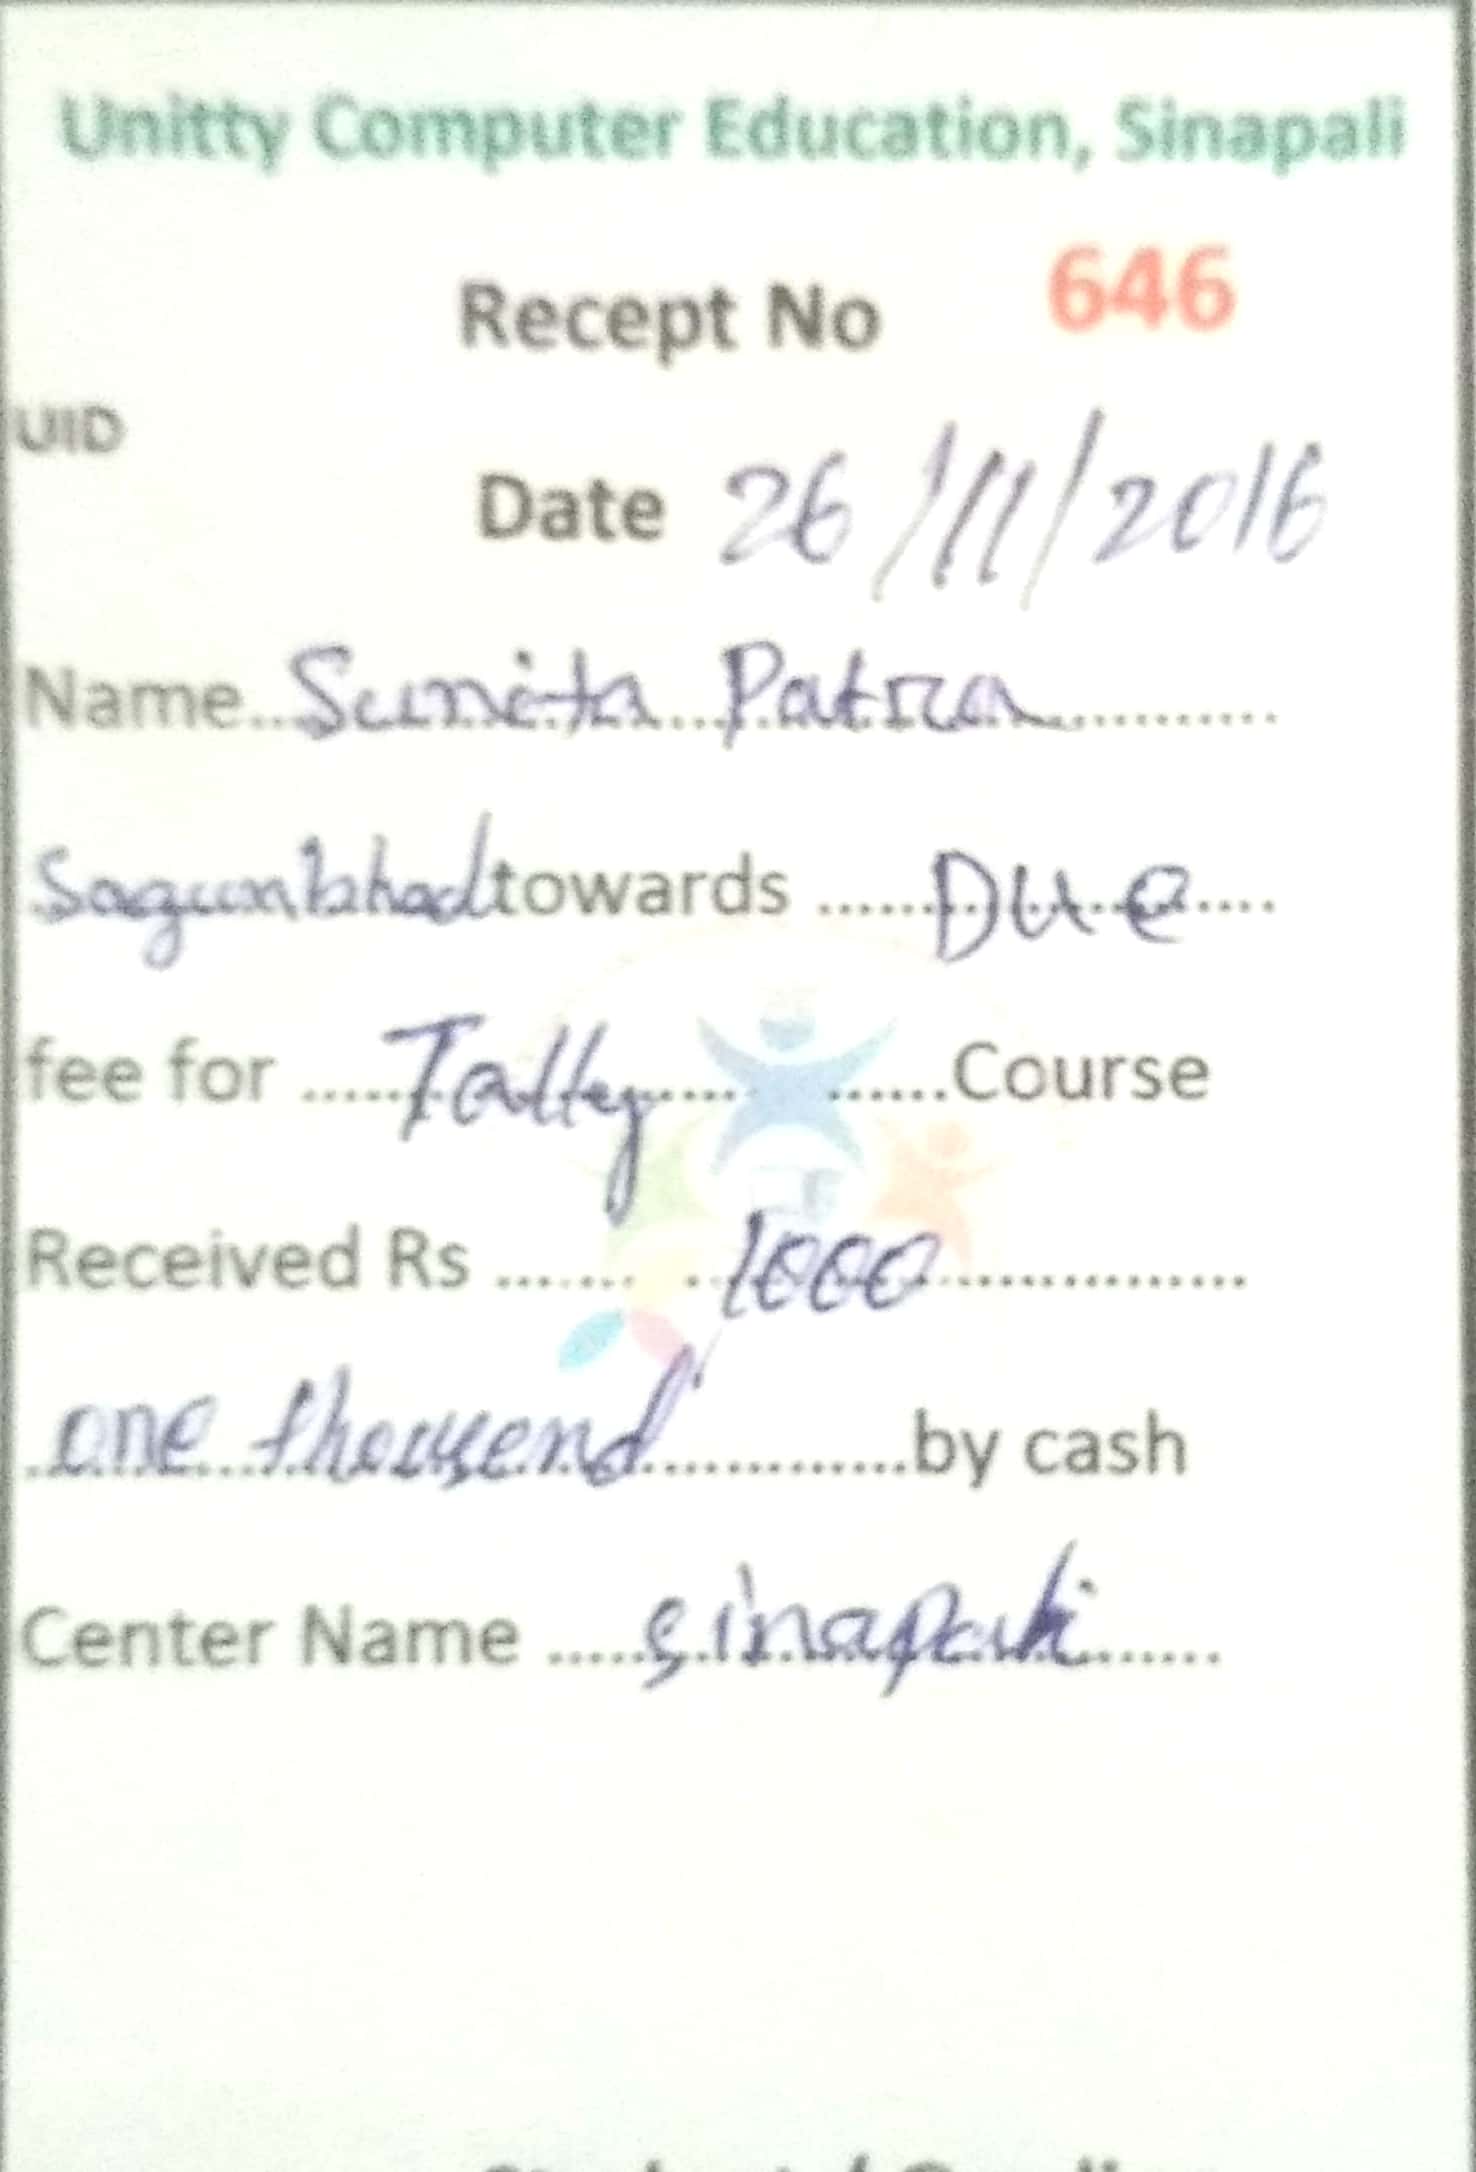 Unitty Computer Education, Sinapali
Recept No 646
UID
Date 26/11/2016
Name..Sunita Patra..........
Sagunbhadi towards .....Due....
fee for .....Tally..... ......Course
Received Rs ....... ..1000...............
one thousend.............by cash
Center Name .....sinapali......